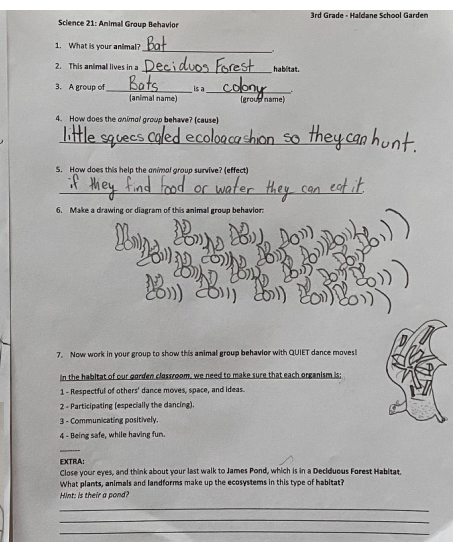 3rd Grade - Haldane School Garden
Science 21: Animal Group Behavior
1. What is your animal? Bat.
2. This animal lives in a Deciduos Forest habitat.
3. A group of Bats is a colony.
(animal name) (group name)
4. How does the animal group behave? (cause)
little squecs caled ecoloacashion so they can hunt.
5. How does this help the animal group survive? (effect)
if they find food or water they can eat it.
6. Make a drawing or diagram of this animal group behavior:
7. Now work in your group to show this animal group behavior with QUIET dance moves!
In the habitat of our garden classroom, we need to make sure that each organism is:
1 - Respectful of others' dance moves, space, and ideas.
2 - Participating (especially the dancing).
3 - Communicating positively.
4 - Being safe, while having fun.
EXTRA:
Close your eyes, and think about your last walk to James Pond, which is in a Deciduous Forest Habitat.
What plants, animals and landforms make up the ecosystems in this type of habitat?
Hint: is their a pond?